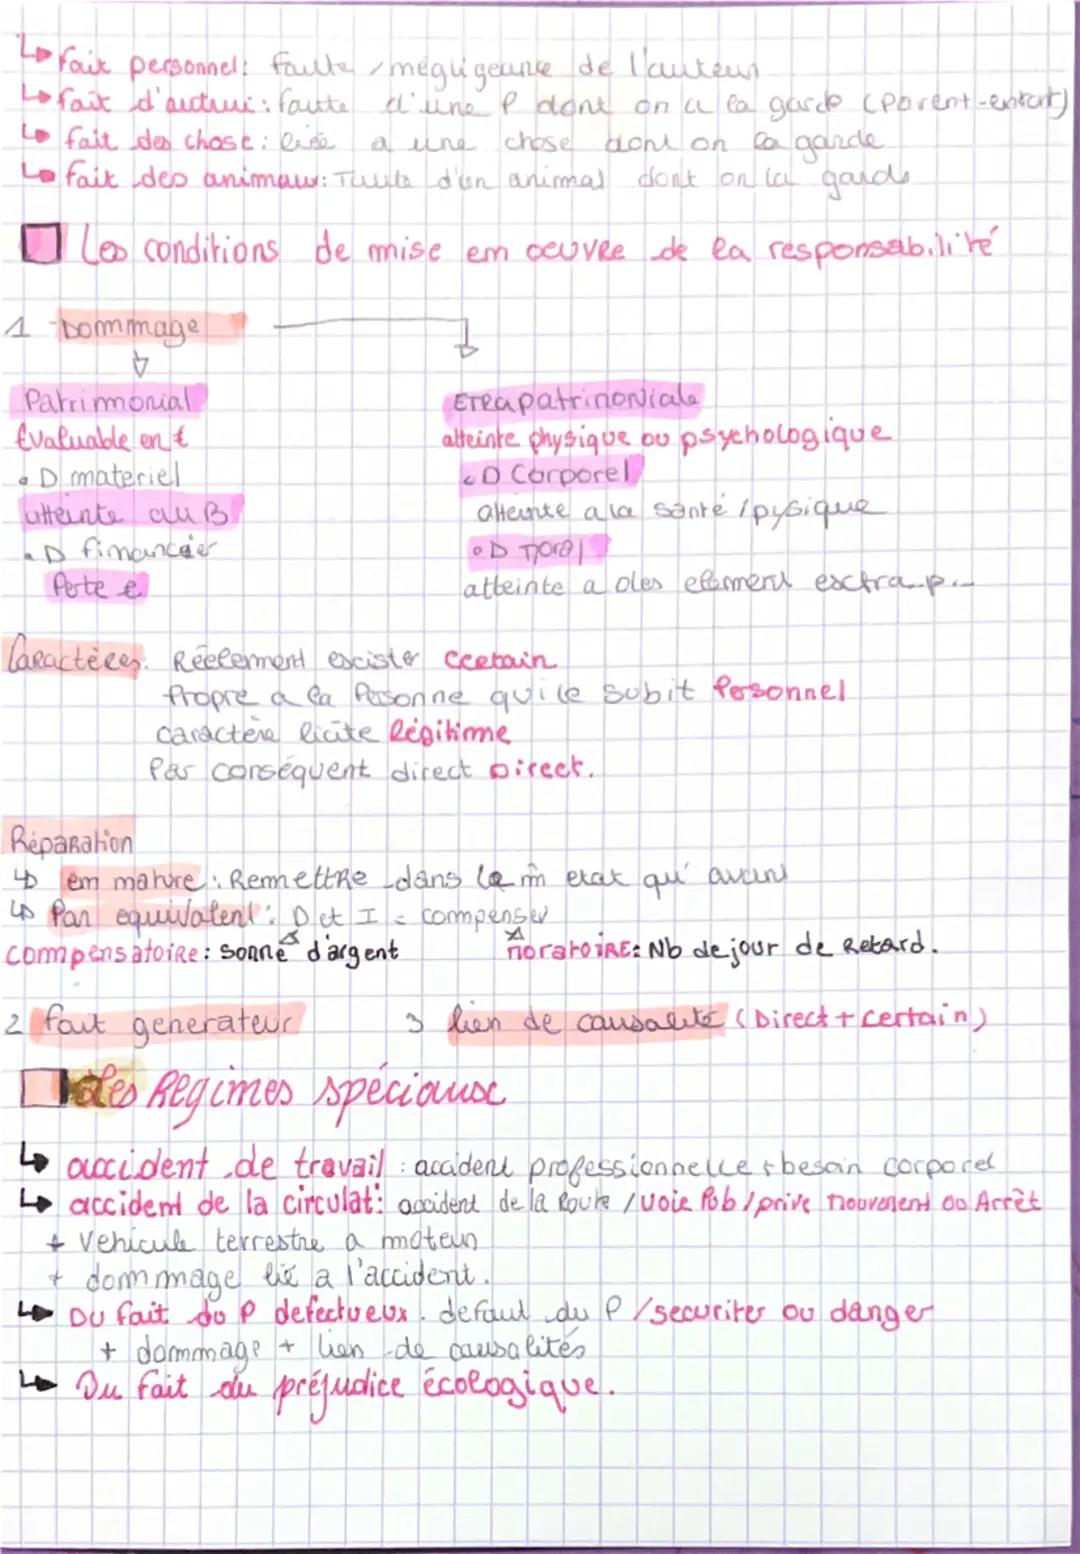 ↳ fait personnel: faute / négligeance de l'auteur
↳ fait d'autrui: faute d'une P dont on a la garde (Parent-enfant)
↳ fait des chose: liée a une chose dont on la garde
↳ fait des animaux: Faute d'un animal dont on la garde
Les conditions de mise en oeuvre de la responsabilité
1 - Dommage
Patrimonial
Evaluable en €
• D materiel
atteinte au B
• D financier
Perte €
Extrapatrimoniale
atteinte physique ou psychologique
• D Corporel
atteinte a la santé / pysique
• D Moral
atteinte a des element exctra p...
Caractères: Réelement exister Certain
Propre a la Personne qui le subit Personnel
caractère licite légitime
Par conséquent direct Direct.
Réparation
↳ en nature: Remettre dans le m̂ etat qu'avant
↳ Par equivalent: D et I = compenser
compensatoire: somme d'argent
moratoire: Nb de jour de Retard.
2 fait generateur
3 lien de causalité (Direct + certain)
Les Régimes spéciaux
↳ accident de travail: accident professionnelle + besoin corporel
↳ accident de la circulat°: accident de la Route / Voie Pub / prive mouvement ou Arrêt
+ Vehicule terrestre a moteur
+ dommage lié a l'accident.
↳ Du fait du P defectueux: defaut du P / securiter ou danger
+ dommage + lien de causalités
↳ Du fait du préjudice écologique.